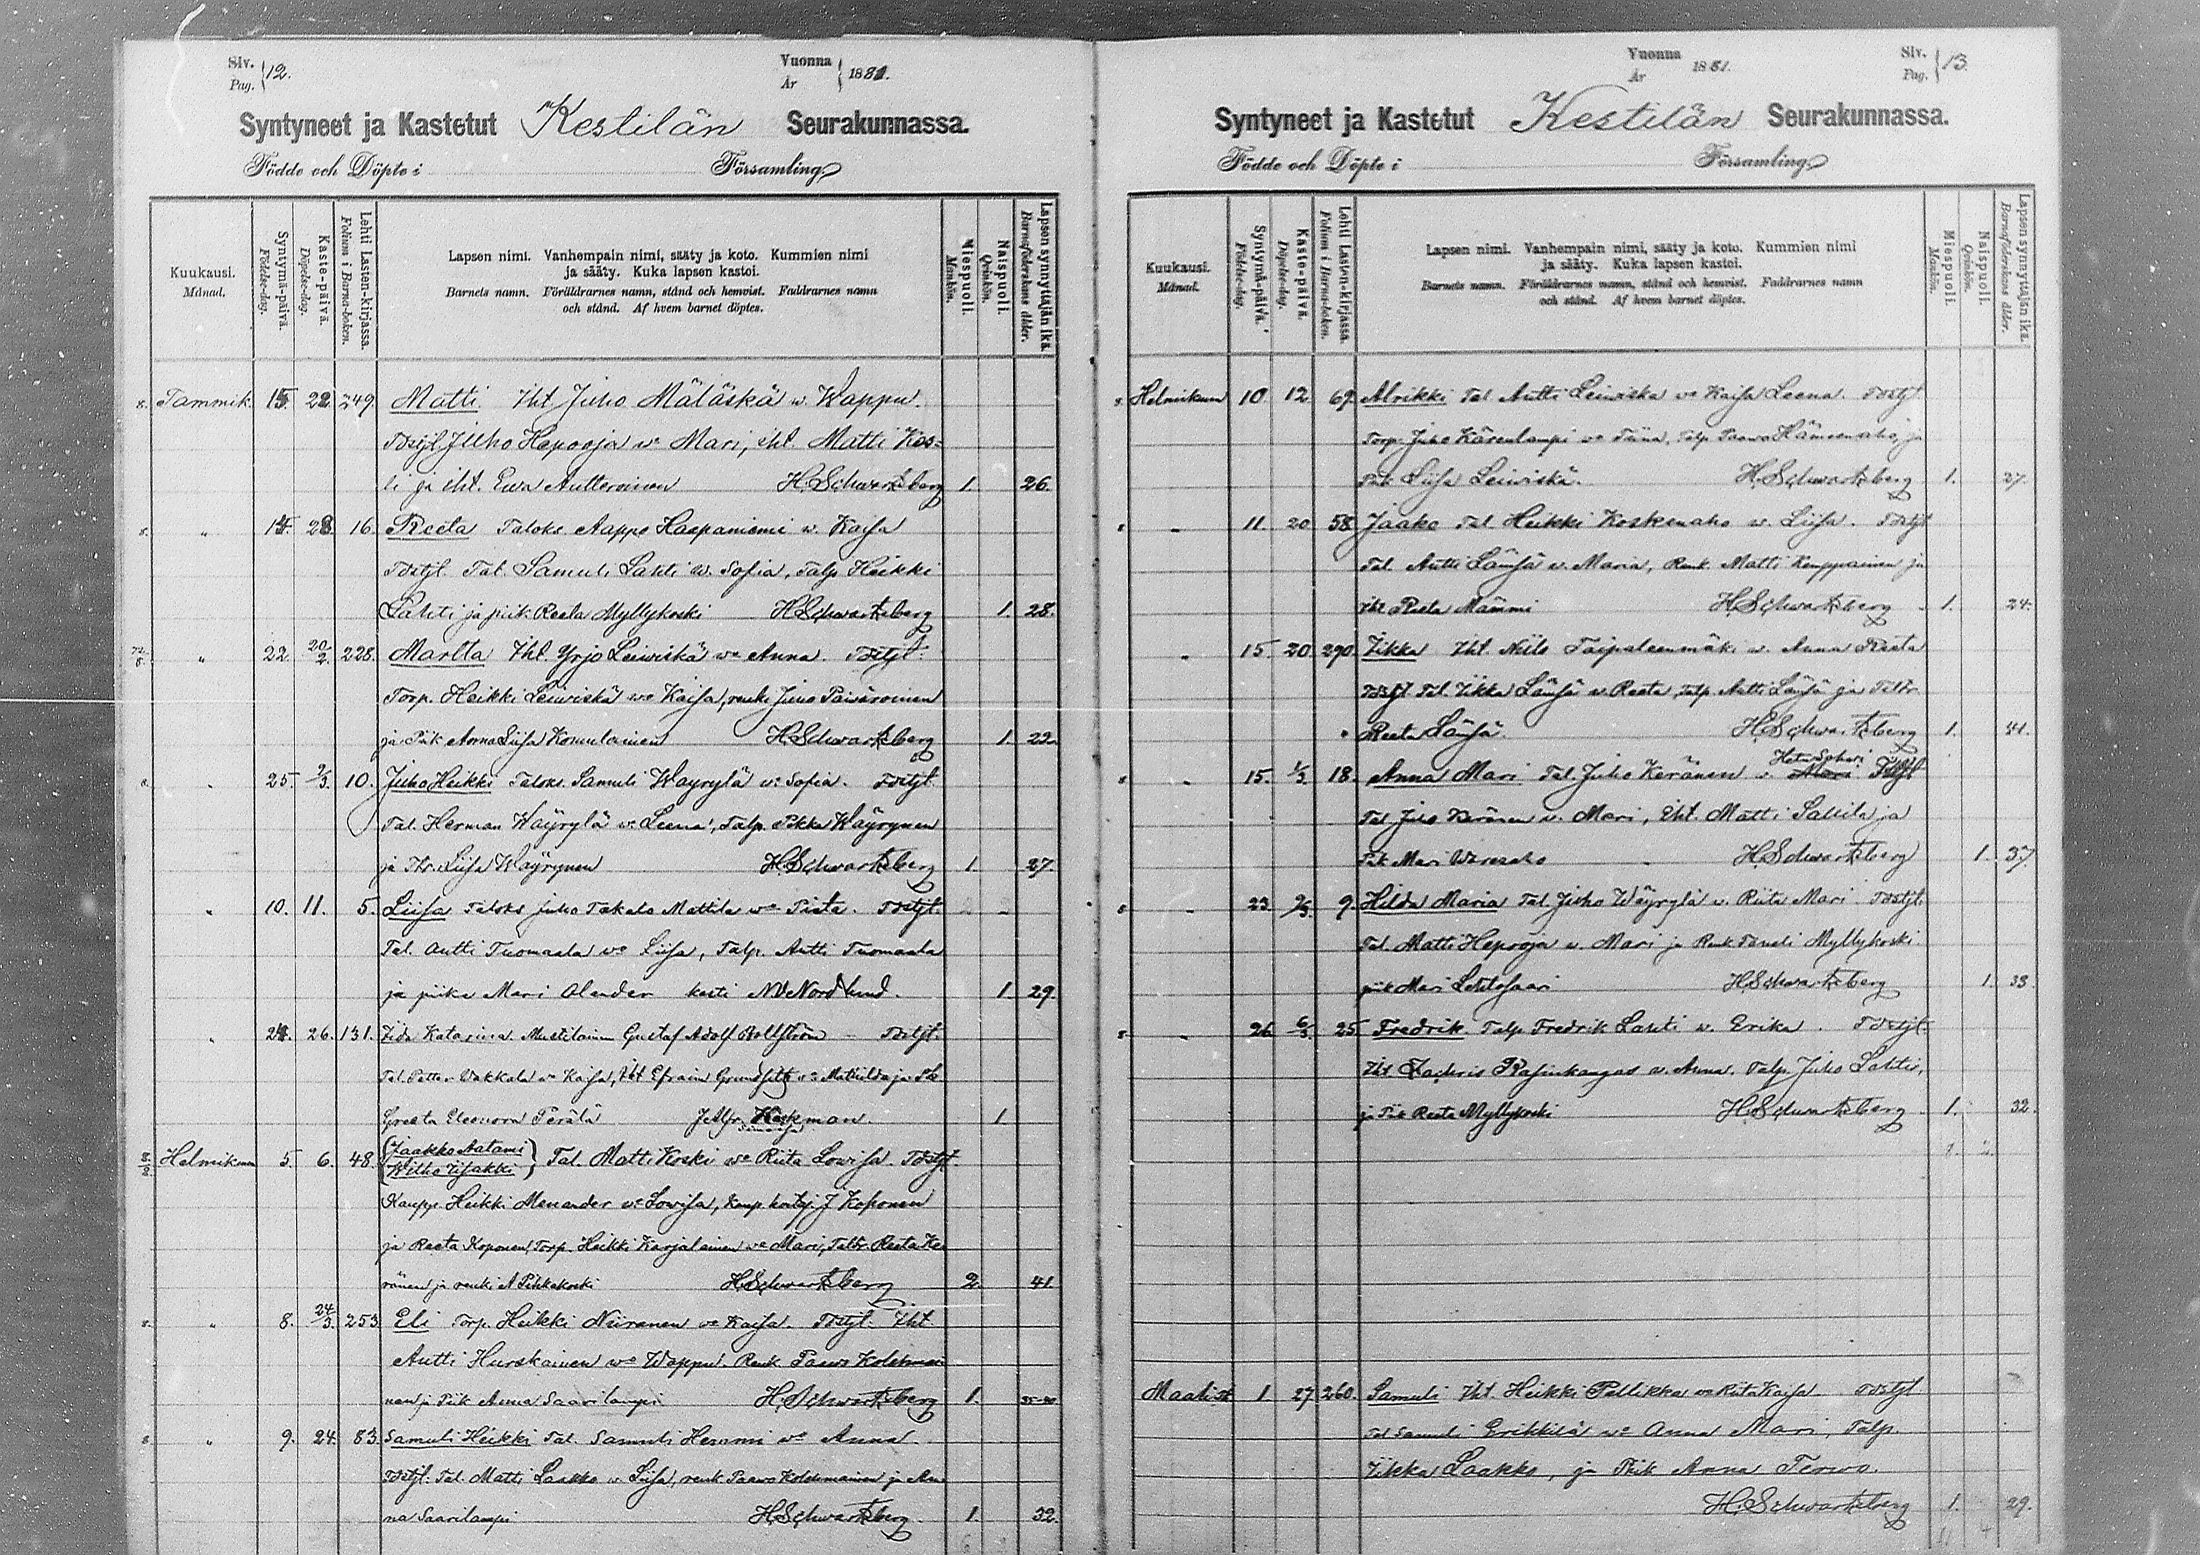 Siv. Pag. 12.
Vuonna År 1881.
Syntyneet ja Kastetut Kestilän Seurakunnassa.
Födde och Döpte i Församling
Kuukausi. Månad.
Syntymä-päivä. Födelse-dag.
Kaste-päivä. Döpelse-dag.
Lehti Lasten-kirjassa. Folium i Barna-boken.
Lapsen nimi. Vanhempain nimi, sääty ja koto. Kummien nimi
ja sääty. Kuka lapsen kastoi.
Barnets namn. Föräldrarnes namn, stånd och hemvist. Faddrarnes namn
och stånd. Af hvem barnet döptes.
Miespuoli. Mankön.
Naispuoli. Qvinkön.
Lapsen synnyttäjän ikä. Barnaföderskans ålder.
8. Tammik. 15. 22. 249. Matti. Iht. Juho Mäläskä w. Wappu.
Tdstjl. Juho Hepooja wo Mari, iht. Matti Kos=
ti ja iht. Ewa Autteroinen H. Schwartzberg 1. 26.
8. " 14. 23. 16. Reeta Taloks. Aappo Haapaniemi w. Kaisa
Tdstjl. Tal. Samuli Lahti w. Sofia, Talp. Heikki
Lahti ja piik. Reeta Myllykoski H. Schwartzberg 1. 28.
" 22 20/2 228. Martta Iht. Yrjö Leiwiskä wo Anna. Tdstjl.
Torp. Heikki Leiwiskä wo Kaisa, renki Juho Päiwäroinen
ja Piik Anna Liisa Komulainen H. Schwartzberg 1. 22.
8. " 25. 2/3. 10. Juho Heikki Taloks. Samuli Wäyrylä wo Sofia. Tdstjl.
Tal. Herman Wäyrylä wo Leena, Talp. Pekka Wäyrynen
ja Ttr. Liisa Wäyrynen H. Schwartzberg 1. 27.
" 10. 11. 5. Liisa Taloks Juho Takalo Mattila wo Pieta. Tdstjl.
Tal. Antti Tuomaala wo Liisa, Talp. Antti Tuomaala
ja piika Mari Olander kasti Nordlund. 1 29.
" 24. 26. 131. Iida Katariina Mustilainen Gustaf Adolf Tdstjl.
Tal. Petter Wakkala wo Kaisa, Iht Efraim wo Mathilda ja
Greeta Eleonora Perälä Heikman. 1
Helmikuu 5. 6. 48. Jaakko Aatami
Wilho Iisakki Tal. Matti Koski wo Riita Lowisa. Tdstjl.
Kaupp. Heikki Menander wo Lowisa, J Koponen
ja Reeta Koponen, Torp. Heikki Karjalainen wo Mari, Taltr. Reeta Ke=
ränen ja renki A Pihkakoski H. Schwartzberg 2. 41.
8. " 8. 24/3. 253 Eli Torp. Heikki Niiranen wo Kaisa. Tdstjl. Iht.
Antti Hurskainen wo Wappu. Renk Paawo Kolehmai=
nen ja Piik Anna Saarilampi H. Schwartzberg 1.
8 " 9. 24. 83. Samuli Heikki Tal. Samuli Hemmi wo Anna
Tdstjl. Tal. Matti Laakko w. Liisa, renk Paawo Kolehmainen ja An=
na Saarilampi H. Schwartzberg 1. 32.
Vuonna År 1881.
Siv. Pag. 13.
Syntyneet ja Kastetut Kestilän Seurakunnassa.
Födde och Döpte i Församling
Kuukausi. Månad.
Syntymä-päivä. Födelse-dag.
Kaste-päivä. Döpelse-dag.
Lehti Lasten-kirjassa. Folium i Barna-boken.
Lapsen nimi. Vanhempain nimi, sääty ja koto. Kummien nimi
ja sääty. Kuka lapsen kastoi.
Barnets namn. Föräldrarnes namn, stånd och hemvist. Faddrarnes namn
och stånd. Af hvem barnet döptes.
Miespuoli. Mankön.
Naispuoli. Qvinkön.
Lapsen synnyttäjän ikä. Barnaföderskans ålder.
8. Helmikuu 10 12 69. Alrikki Tal Antti Leiwiska wo Kaisa Leena. Tdstjl.
Torp. Juho Kärenlampi wo Tiina, Talp. Paawo Hämeenaho, ja
Piik Liisa Leiwiskä. H. Schwartzberg 1. 27.
" 11. 20 58. Jaako Tal Heikki Koskenaho w. Liisa. Tdstjl
Tal. Antti Länsä w. Maria, Renk. Matti Kemppainen ja
Iht Reeta Mämmi H. Schwartzberg 1. 24.
" 15. 20 290. Iikka Iht. Niilo Taipaleenmäki w. Anna Reeta
Tdstjl Tal. Iikka Länsä w. Reeta, Talp. Antti Länsä ja Taltr.
Reeta Länsä H. Schwartzberg 1. 41.
8 " 15. 1/3 18. Anna Mari Tal. Juho Keränen w. Mari Tdstjl
Tal. Juho Keränen w. Mari, Iht. Matti ja
Piik Mari H. Schwartzberg 1. 37.
8 " 23. 9. Hilda Maria Tal. Juho Wäyrylä w. Riita Mari Tdstjl.
Tal. Matti Hepooja w. Mari ja Renk Taneli Myllykoski
piik Mari Lehtosaari H. Schwartzberg 1. 33
8 " 26. 6/3 25 Fredrik. Talp. Fredrik Lahti w. Erika. Tdstjl.
Iht Zachris Rasinkangas w. Anna, Talp. Juho Lahti,
ja Piik Reeta Myllykoski H. Schwartzberg 1. 32.
Maalisk 1. 27. 260. Samuli Iht. Heikki Pellikka wo Riita Kaisa Tdstjl
Tal Samuli Erikkilä wo Anna Mari, Talp.
Iikka Laakko, ja Piik Anna Terwo.
H. Schwartzberg 1. 29.